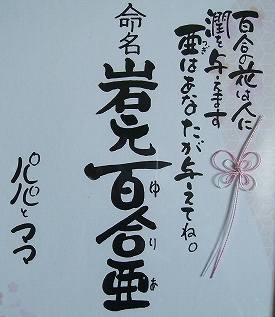 百合の花は人に
潤を与えます
亜はあなたが与えてね。
つぎ
命名
岩元百合亜
ゆりあ
パパとママ